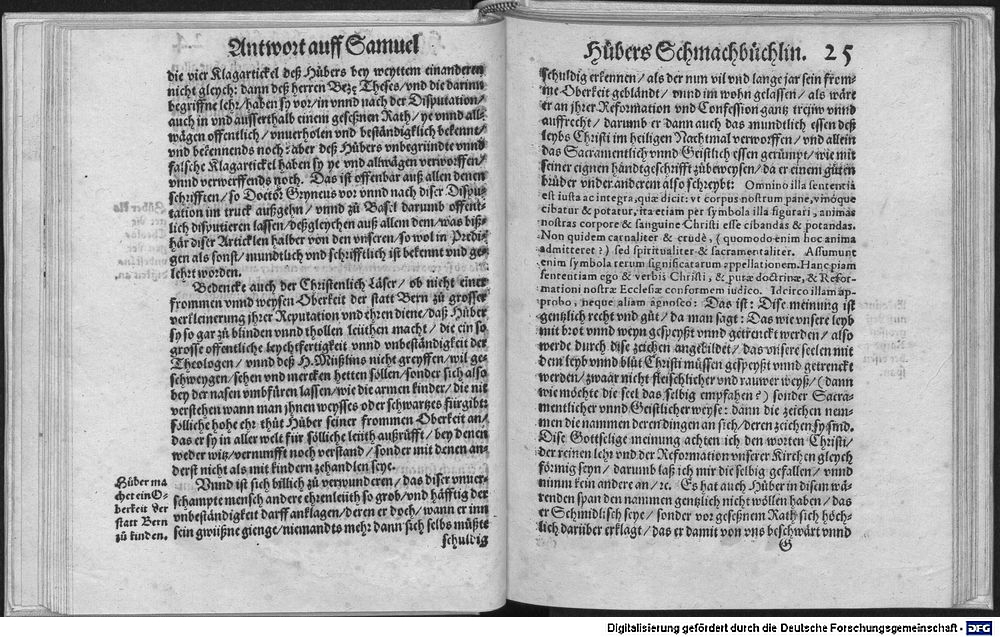 Antwort auff Samuel
die vier Klagartickel deß Hůbers bey weyttem einanderen
nicht gleych: dann deß herren Beze Theses/ vnd die darinn
begriffne lehr/ haben sy vor/ in vnnd nach der Disputation/
auch in vnd ausserthalb einem geseßnen Rath/ ye vnnd all-
wägen offentlich/ vnuerholen vnd beständigklich bekennt/
vnd bekennends noch: aber deß Hůbers vnbegründte vnnd
falsche Klagartickel haben sy ye vnd allwägen verworffen/
vnnd verwerffends noch. Das ist offenbar auß allen denen
schrifften/ so Doctor Gryneus vor vnnd nach diser Dispu-
tation im truck außgehn/ vnnd zů Basel darumb offent-
lich disputieren lassen/ deßgleychen auß allem dem/ was biß-
här diser Articklen halber von den vnseren/ so wol in Predi-
gen als sonst/ mundtlich vnd schrifftlich ist bekennt vnd ge-
lehrt worden.
Bedencke auch der Christenlich Läser/ ob nicht einer
frommen vnnd weysen Oberkeit der statt Bern zů grosser
verkleinerung jhrer Reputation vnd ehren diene/ daß Hůber
sy so gar zů blinden vnnd thollen leüthen macht/ die ein so
grosse offentliche leychtfertigkeit vnnd vnbeständigkeit der
Theologen/ vnnd deß H. Müßlins nicht greyffen/ wil ge-
schweygen/ sehen vnd mercken hetten söllen/ sonder sich also
bey der nasen vmbfüren lassen/ wie die armen kinder/ die nit
verstehen wann man jhnen weysses oder schwartzes fürgibt:
sölliche hohe ehr thůt Hůber seiner frommen Oberkeit an/
das er sy in aller welt für sölliche leüth außrüfft/ bey denen
weder witz/ vernunfft noch verstand/ sonder mit denen an-
derst nicht als mit kindern zehandlen seye.
Hůber ma
chet ein O-
berkeit der
statt Bern
zů kinden.
Vnnd ist sich billich zů verwunderen/ das diser vnuer-
schampte mensch andere ehrenleüth so grob/ vnd häfftig der
vnbeständigkeit darff anklagen/ deren er doch/ wann er inn
sein gwüßne gienge/ niemandts mehr dann sich selbs müßte
schuldig
Hůbers Schmachbüchlin. 25
schuldig erkennen/ als der nun vil vnd lange jar sein from-
me Oberkeit gebländt/ vnnd im wohn gelassen/ als wäre
er an jhrer Reformation vnd Confession gantz treüw vnnd
auffrecht/ darumb er dann auch das mundtlich essen deß
leybs Christi im heiligen Nachtmal verworffen/ vnd allein
das Sacramentlich vnnd Geistlich essen gerümpt/ wie mit
seiner eignen handtgeschrifft zübeweysen/ da er einem gůten
brůder vnder anderem also schreybt: Omnino illa sententiâ
est iusta ac integra, quæ dicit: vt corpus nostrum pane, vinóque
cibatur & potatur, ita etiam per symbola illa figurari, animas
nostras corpore & sanguine Christi esse cibandas & potandas.
Non quidem carnaliter & crudè, (quomodo enim hoc anima
admitteret?) sed spiritualiter & sacramentaliter. Assumunt
enim symbola rerum significatarum appellationem. Hanc piam
sententiam ego & verbis Christi, & puræ doctrinæ, & Refor-
mationi nostræ Ecclesiæ conformem iudico. Idcirco illam ap-
probo, neque aliam agnosco: Das ist: Dise meinung ist
gentzlich recht vnd gůt/ da man sagt: Das wie vnsere leyb
mit brot vnnd weyn gespeyßt vnnd getrenckt werden/ also
werde durch dise zeichen angebildet/ das vnsere seelen mit
dem leyb vnnd blůt Christi müssen gespeyßt vnnd getrenckt
werden/ zwaar nicht fleischlicher vnd rauwer weyß/ (dann
wie möchte die seel das selbig empfahen?) sonder Sacra-
mentlicher vnnd Geistlicher weyse: dann die zeichen nem-
men die nammen deren dingen an sich/ deren zeichen sy sind.
Dise Gottselige meinung achten ich den worten Christi/
der reinen lehr vnd der Reformation vnserer Kirchen gleych
förmig seyn/ darumb laß ich mir die selbig gefallen/ vnnd
nimm kein andere an/ ꝛc. Es hat auch Hůber in disem wä-
renden span den nammen gentzlich nicht wöllen haben/ das
er Schmidlisch seye/ sonder vor geseßnem Rath sich höch-
lich darüber erklagt/ das er damit von vns beschwärt vnnd
G
Digitalisierung gefördert durch die Deutsche Forschungsgemeinschaft - DFG